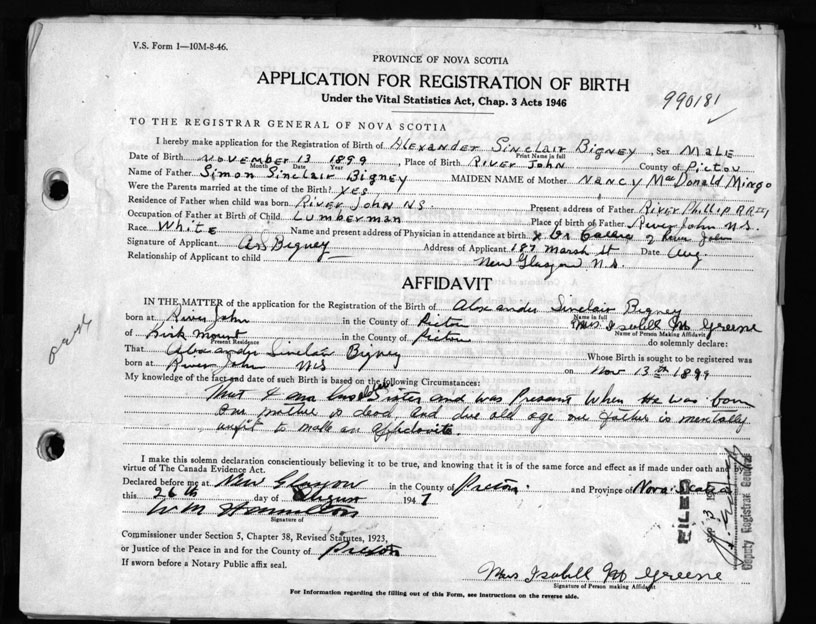 V.S. Form 1—10M-8-46.
PROVINCE OF NOVA SCOTIA
APPLICATION FOR REGISTRATION OF BIRTH
Under the Vital Statistics Act, Chap. 3 Acts 1946
990181
TO THE REGISTRAR GENERAL OF NOVA SCOTIA
I hereby make application for the Registration of Birth of Alexander Sinclair Bigney, Sex Male
Print Name in full
Date of Birth November 13 1899, Place of Birth River John County of Pictou
Month Date Year
Name of Father Simon Sinclair Bigney MAIDEN NAME of Mother Nancy MacDonald Mingo
Were the Parents married at the time of the Birth? Yes
Residence of Father when child was born River John N.S. Present address of Father River Phillip
Occupation of Father at Birth of Child Lumberman Place of birth of Father River John N.S.
Race White Name and present address of Physician in attendance at birth x Dr of River John
Signature of Applicant Bigney Address of Applicant 187 Marsh St Date Aug.
Relationship of Applicant to child New Glasgow N.S.
AFFIDAVIT
IN THE MATTER of the application for the Registration of the Birth of Alexander Sinclair Bigney
Name in full
born at River John in the County of Pictou Mrs. Isabell M Greene
Name of Person Making Affidavit
of Kirk Mount in the County of Pictou do solemnly declare:
Present Residence
That Alexander Sinclair Bigney Whose Birth is sought to be registered was
born at River John N.S on Nov 13th 1899
My knowledge of the fact and date of such Birth is based on the following Circumstances:
That I am Sister and was Present When He was born
Our mother is dead, and due old age our father is mentally
unfit to make an affidavite.
I make this solemn declaration conscientiously believing it to be true, and knowing that it is of the same force and effect as if made under oath and by
virtue of The Canada Evidence Act.
Declared before me at New Glasgow in the County of Pictou and Province of Nova Scotia
this 26th day of August 1947
W M Hamilton
Signature of
Commissioner under Section 5, Chapter 38, Revised Statutes, 1923,
or Justice of the Peace in and for the County of Pictou
If sworn before a Notary Public affix seal.
Mrs Isabell M Greene
Signature of Person making Affidavit
For Information regarding the filling out of this Form, see instructions on the reverse side.
FILED
Deputy Registrar General